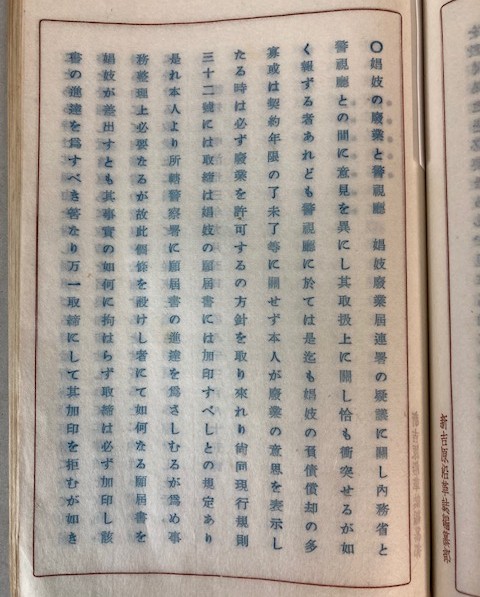 〇娼妓の廢業と警視廳　娼妓廢業屆連署の疑議に關し內務省と
警視廳との間に意見を異にし其取扱上に關し恰も衝突せるが如
く報ずる者あれども警視廳に於ては是迄も娼妓の負債償却の多
寡或は契約年限の了未了等に關せず本人が廢業の意思を表示し
たる時は必ず廢業を許可するの方針を取り來れり尙同現行規則
三十二號には取締は娼妓の願屆書には加印すべしとの規定あり
是れ本人より所轄警察署に願屆書の進達を爲さしむるが爲め事
務整理上必要なるが故此個條を設けし者にて如何なる願屆書を
娼妓が差出すとも其事實の如何に拘はらず取締は必ず加印し該
書の進達を爲すべき筈なり万一取締にして其加印を拒むが如き
新吉原沿革誌編纂部